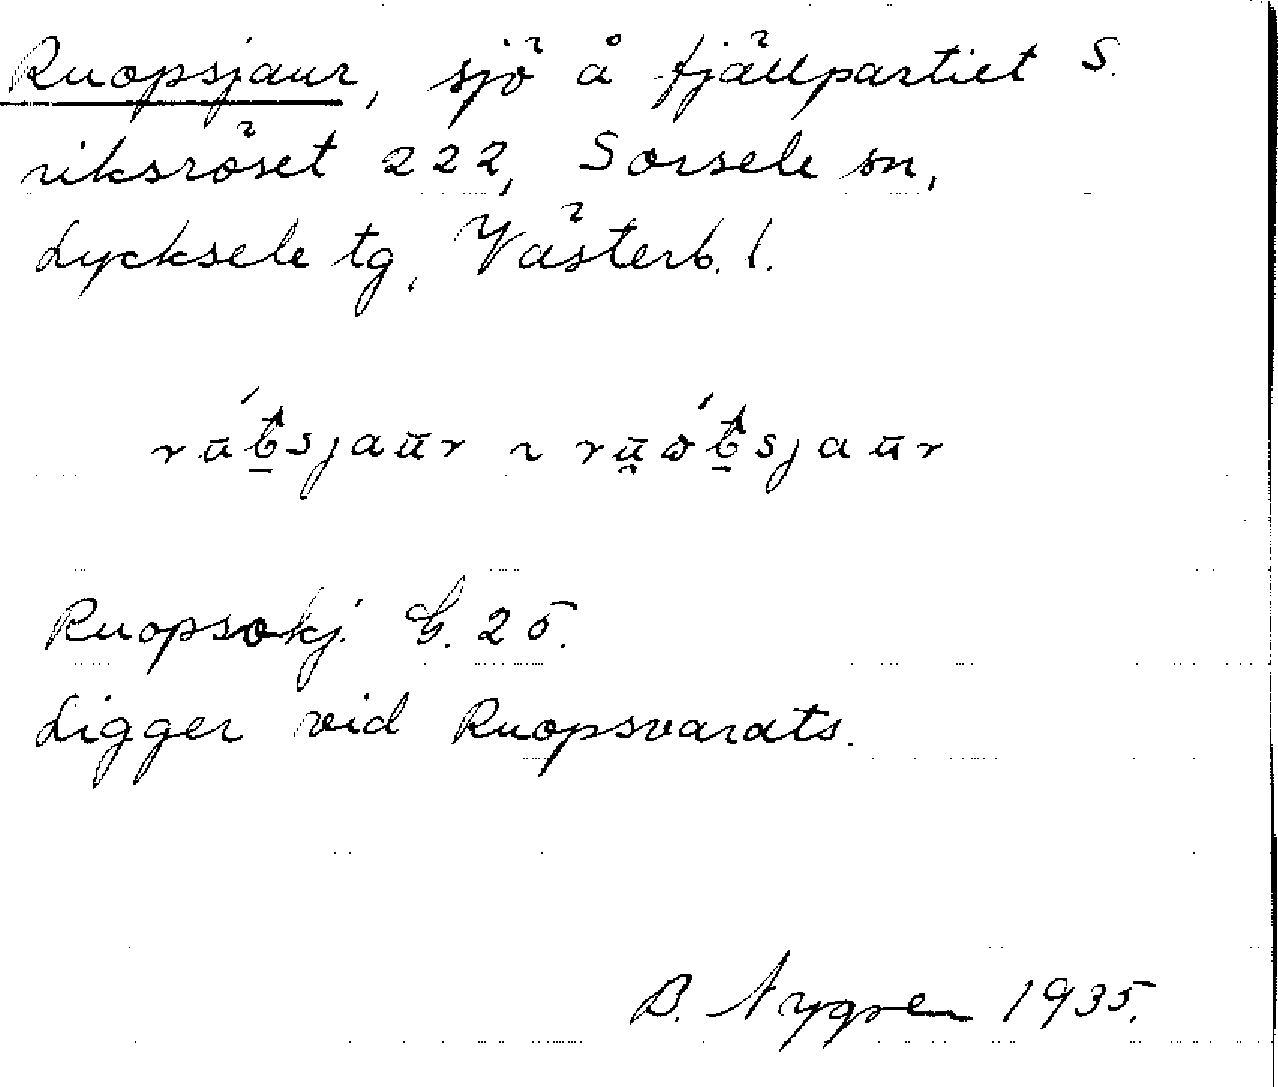 Ruopsjaur, sjö å fjällpartiet S.
riksröset 222, Sorsele sn,
Lycksele tg, Västerb. l.
Ruopsokj. G. 25.
Ligger vid Ruopsvarats.
B. Nygren 1935.